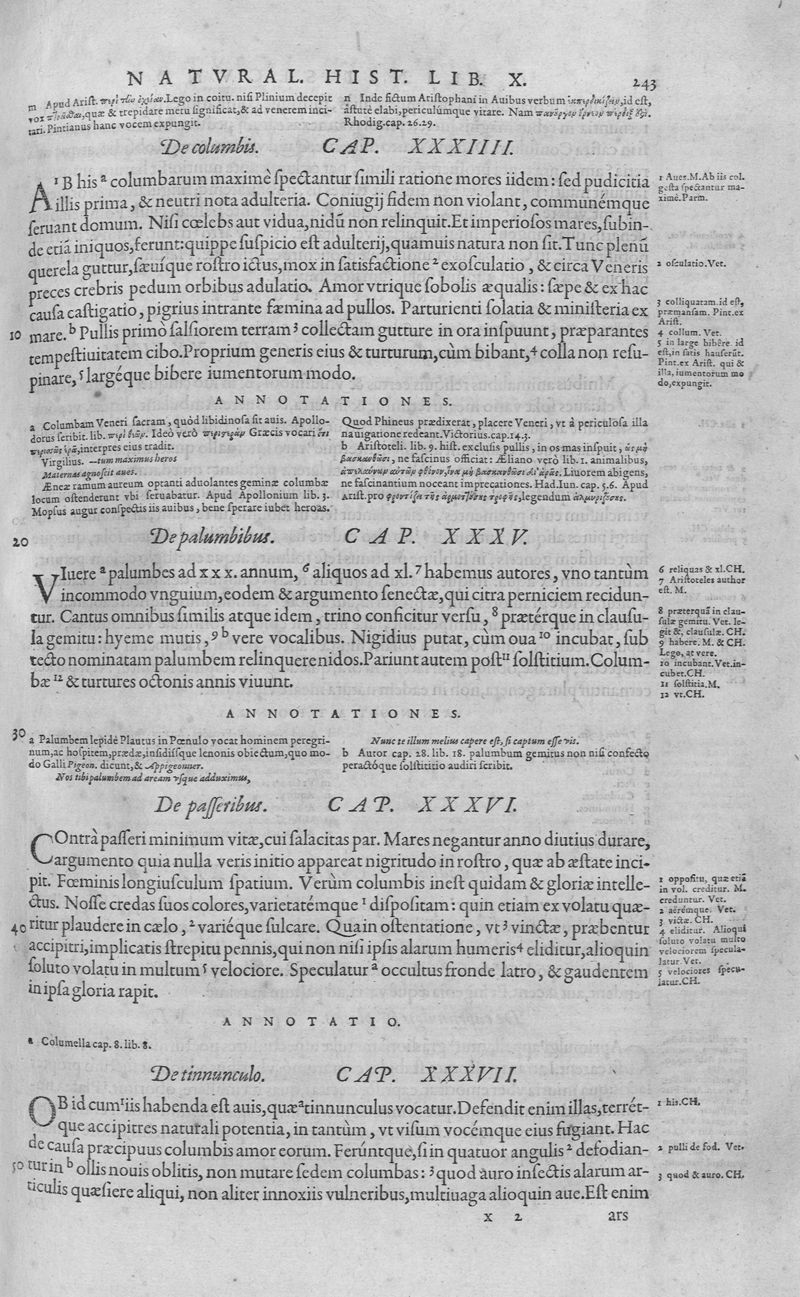 NATVRAL. HIST. LIB. X. 243
m Apud Arist. Lego in coitu. nisi Plinium decepit
vox quæ & trepidare metu significat, & ad venerem inci-
tari. Pintianus hanc vocem expungit.
n Inde fictum Aristophani in Auibus verbum id est,
astutè elabi, periculúmque vitare. Nam
Rhodig. cap. 26.29.
De columbis. CAP. XXXIIII.
AB his ª columbarum maximè spectantur simili ratione mores iidem: sed pudicitia
illis prima, & neutri nota adulteria. Coniugij fidem non violant, communémque
seruant domum. Nisi cœlebs aut vidua, nidũ non relinquit. Et imperiosos mares, subin-
de etiã iniquos, ferunt: quippe suspicio est adulterij, quamuis natura non sit. Tunc plenũ
querela guttur, sæuíque rostro ictus, mox in satisfactione ² exosculatio, & circa Veneris
preces crebris pedum orbibus adulatio. Amor vtrique sobolis æqualis: sæpe & ex hac
causa castigatio, pigrius intrante fæmina ad pullos. Parturienti solatia & ministeria ex
10 mare. ᵇ Pullis primò salsiorem terram ³ collectam gutture in ora inspuunt, præparantes
tempestiuitatem cibo. Proprium generis eius & turturum, cùm bibant, ⁴ colla non resu-
pinare, ⁵ largéque bibere iumentorum modo.
1 Aues. M. Ab iis col.
gesta spectantur ma-
ximè. Parm.
2 osculatio. Vet.
3 colliquatam. id est,
præmansam. Pint. ex
Arist.
4 collum. Vet.
5 in large bibêre. id
est, in satis hauserũt.
Pint. ex Arist. qui &
illa, iumentorum mo
do, expungit.
ANNOTATIONES.
a Columbam Veneri sacram, quòd libidinosa sit auis. Apollo-
dorus scribit. lib. Ideò verò Græcis vocari
interpres eius tradit.
Virgilius. —tum maximus heros
Maternas agnoscit aues.
Æneæ ramum aureum optanti aduolantes geminæ columbæ
locum ostenderunt vbi seruabatur. Apud Apollonium lib. 3.
Mopsus augur conspectis iis auibus, bene sperare iubet heroas.
Quod Phineus prædixerat, placere Veneri, vt à periculosa illa
nauigatione redeant. Victorius. cap. 14.3.
b Aristoteli. lib. 9. hist. exclusis pullis, in os mas inspuit,
ne fascinus officiat: Æliano verò lib. 1. animalibus,
Liuorem abigens,
ne fascinantium noceant imprecationes. Had. Iun. cap. 5.6. Apud
Arist. pro legendum
20 De palumbibus. CAP. XXXV.
VIuere ª palumbes ad xxx. annum, ⁶ aliquos ad xl. ⁷ habemus autores, vno tantùm
incommodo vnguium, eodem & argumento senectæ, qui citra perniciem recidun-
tur. Cantus omnibus similis atque idem, trino conficitur versu, ⁸ prætérque in clausu-
la gemitu: hyeme mutis, ⁹ ᵇ vere vocalibus. Nigidius putat, cùm oua ¹⁰ incubat, sub
tecto nominatam palumbem relinquere nidos. Pariunt autem post ¹¹ solstitium. Colum-
bæ ¹² & turtures octonis annis viuunt.
6 reliquas & xl. CH.
7 Aristoteles author
est. M.
8 præterquã in clau-
sulæ gemitu. Vet. le-
git &, clausulæ. CH.
9 habere. M. & CH.
Lego, at vere.
10 incubant. Vet. in-
cubet. CH.
11 solstitia. M.
12 vt. CH.
ANNOTATIONES.
30 a Palumbem lepidè Plautus in Pœnulo vocat hominem peregri-
num, ac hospitem, prædæ, insidiisque lenonis obiectum, quo mo-
do Galli Pigeon. dicunt, & Appigeonner.
Nos tibi palumbem ad aream vsque adduximus,
Nunc te illum melius capere est, si captum esse vis.
b Autor cap. 28. lib. 18. palumbum gemitus non nisi confecto
peractóque solstititio audiri scribit.
De passeribus. CAP. XXXVI.
COntrà passeri minimum vitæ, cui salacitas par. Mares negantur anno diutius durare,
argumento quia nulla veris initio appareat nigritudo in rostro, quæ ab æstate inci-
pit. Fœminis longiusculum spatium. Verùm columbis inest quidam & gloriæ intelle-
ctus. Nosse credas suos colores, varietatémque ¹ dispositam: quin etiam ex volatu quæ-
40 ritur plaudere in cælo, ² variéque sulcare. Qua in ostentatione, vt ³ vinctæ, præbentur
accipitri, implicatis strepitu pennis, qui non nisi ipsis alarum humeris ⁴ eliditur, alioquin
soluto volatu in multum ⁵ velociore. Speculatur ª occultus fronde latro, & gaudentem
in ipsa gloria rapit.
1 oppositũ, quæ etiã
in vol. creditur. M.
creduntur. Vet.
2 aërémque. Vet.
3 victæ. CH.
4 eliditur. Alioqui
soluto volatu multo
velociorem specula-
latur. Vet.
5 velociores specu-
latur. CH.
ANNOTATIO.
a Columella cap. 8. lib. 8.
De tinnunculo. CAP. XXXVII.
OB id cum ¹ iis habenda est auis, quæ ª tinnunculus vocatur. Defendit enim illas, terrét-
que accipitres naturali potentia, in tantùm, vt visum vocémque eius fugiant. Hac
de causa præcipuus columbis amor eorum. Ferúntque, si in quatuor angulis ² defodian-
50 tur in ᵇ ollis nouis oblitis, non mutare sedem columbas: ³ quod auro insectis alarum ar-
ticulis quæsiere aliqui, non aliter innoxiis vulneribus, multiuaga alioquin aue. Est enim
1 his. CH.
2 pulli defod. Vet.
3 quod & auro. CH.
x 2 ars